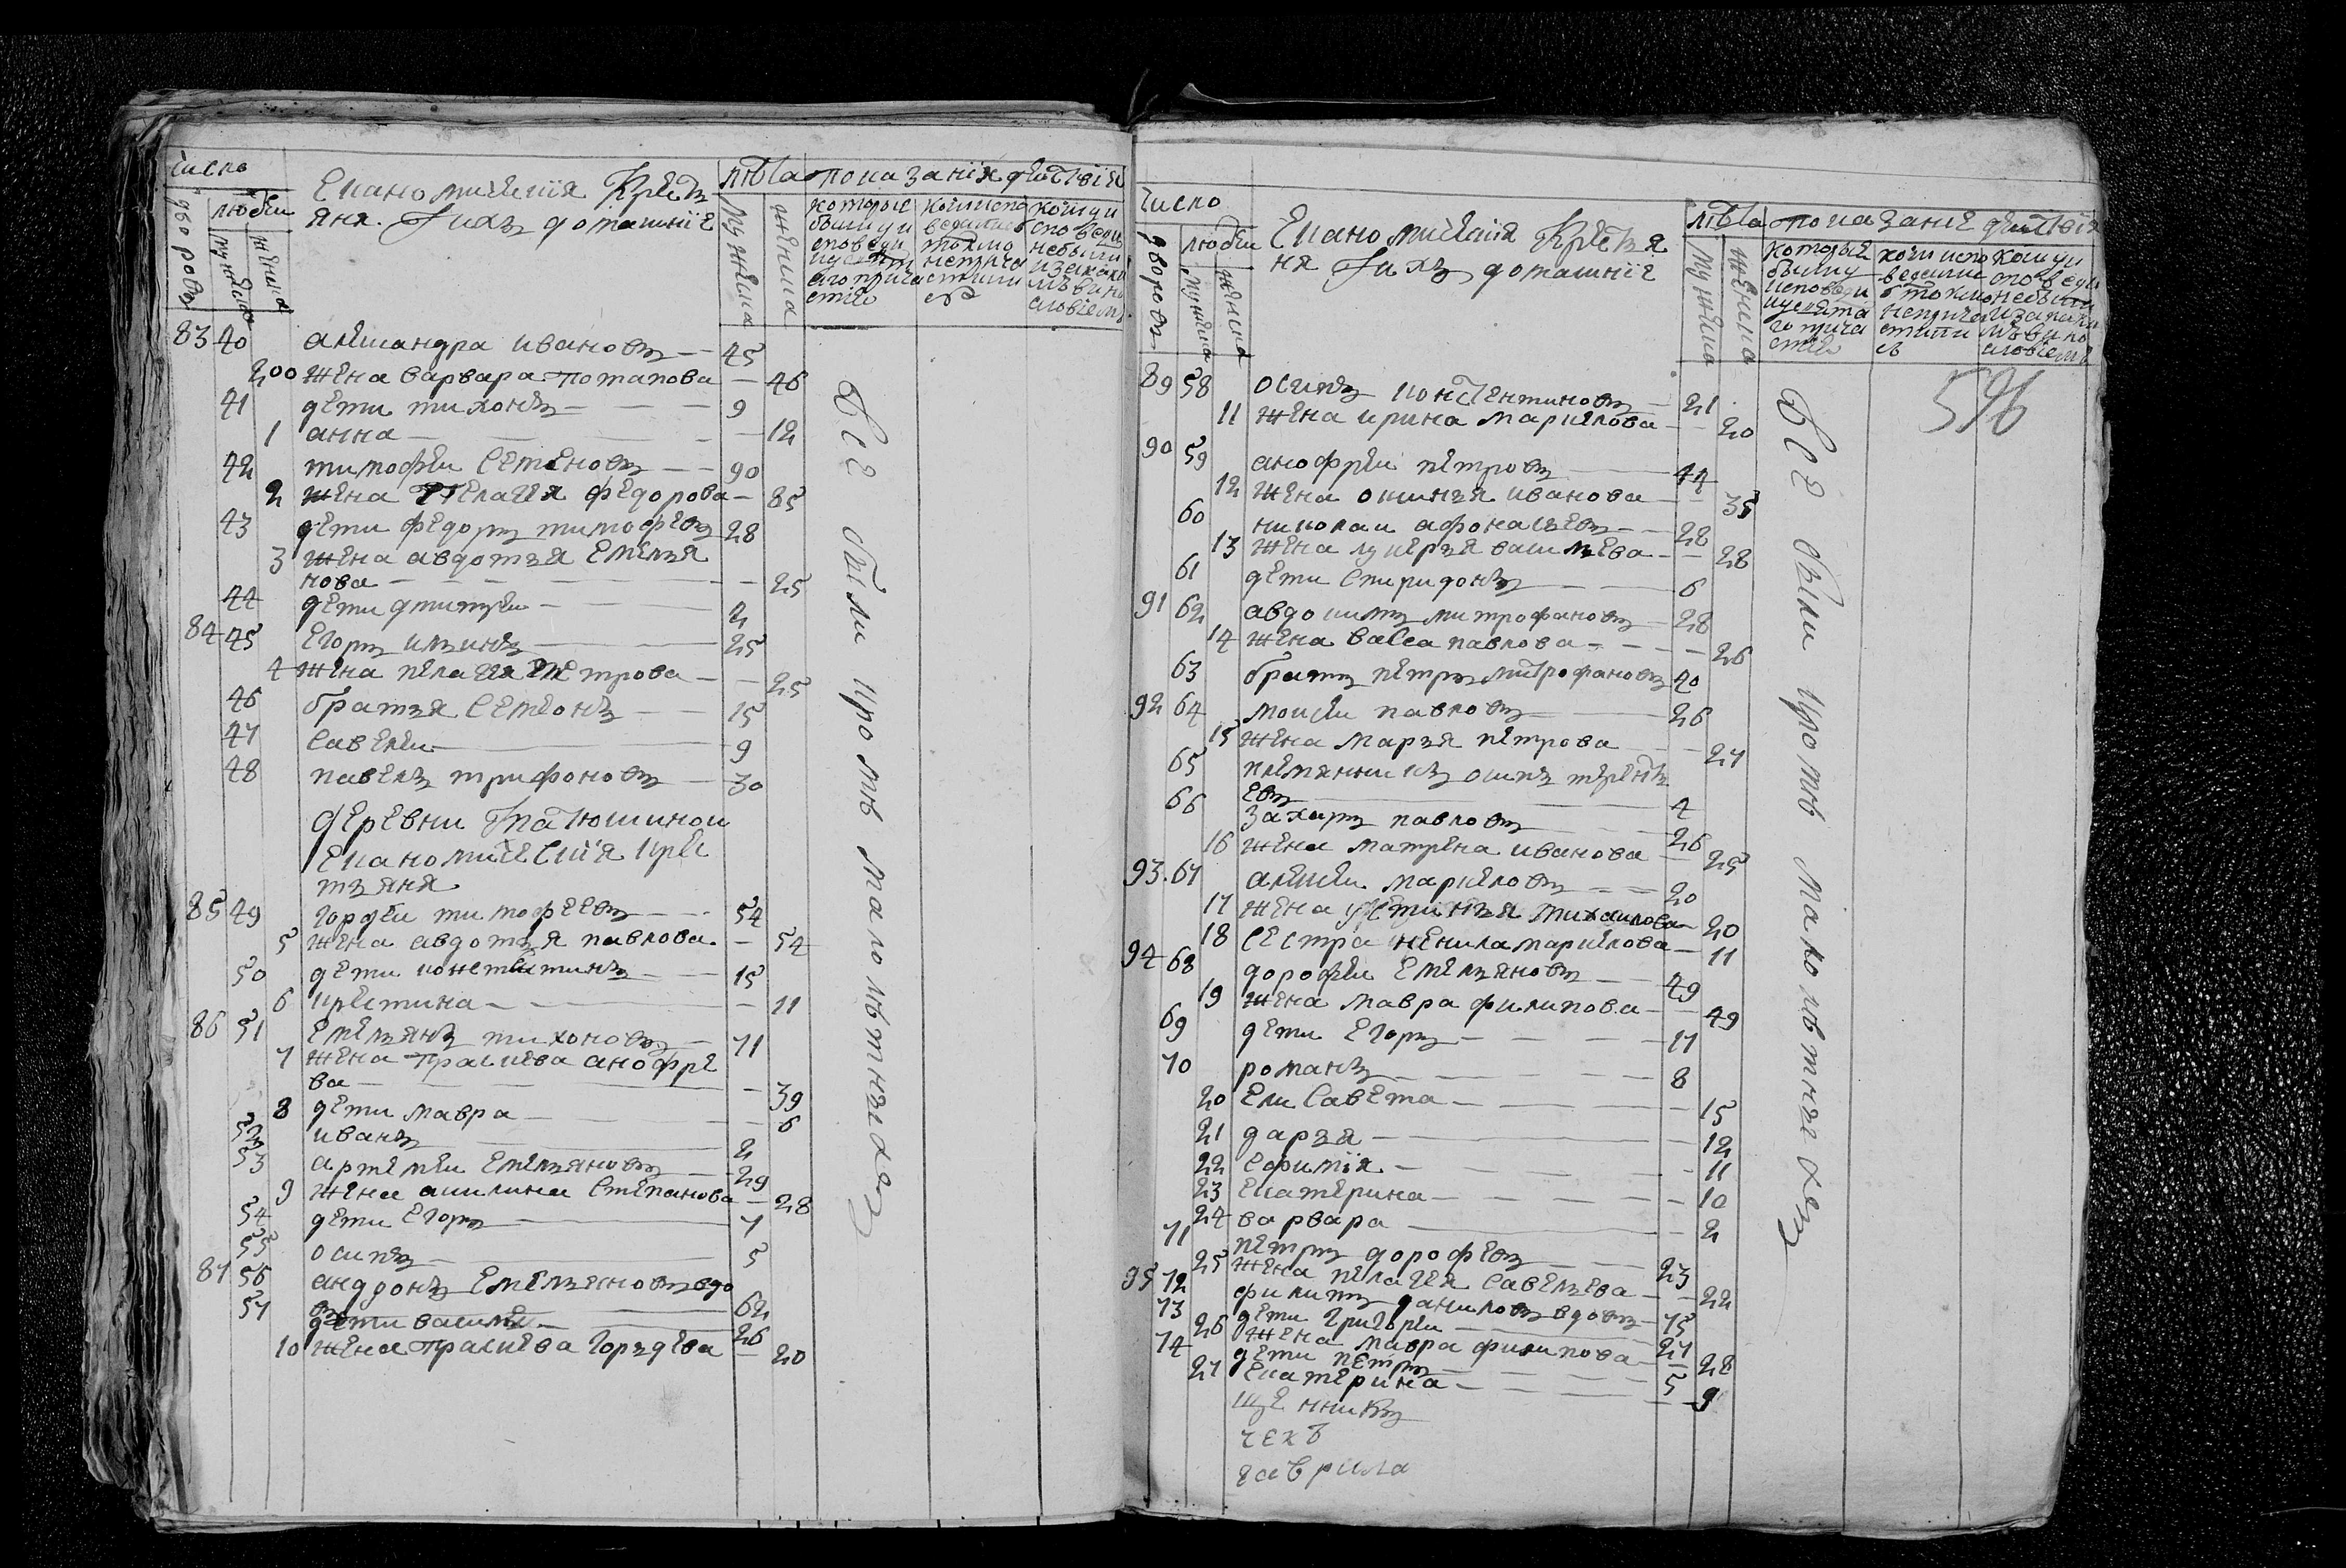 число
Економическия Крестъ
яня. И ихъ домашние
лѣта
показания действия
дворовъ
людеи
мужеска
женска
мужеска
женска
которые
были у и
споведи
и у святаго
причастия
кои испо
ведались
токмо
не прича
стились
кои у и
споведи
не были
и за каки
мъ вино
словiемъ
83 40 александра ивановъ 45
200 жена варвара потапова 46
41 дети тихонъ 9
1 анна 12
42 тимофеи семеновъ 90
2 жена Пелагея федорова 85
43 дети федоръ тимофеевъ 28
3 жена авдотья Емелья
нова 25
44 дети дмитреи 2
84 45 Егоръ ильинъ 25
4 жена пелагея Петрова 25
46 братья семионъ 15
47 савелеи 9
48 павелъ трифоновъ 30
деревни Патюшинои
Економическия крес
тьяня
85 49 гордеи тимофеевъ 54
5 жена авдотья павлова 54
50 дети констентинъ 15
6 крестина 11
86 51 Емельянъ тихоновъ 71
7 жена праскева анофре
ва 39
8 дети мавра 6
52 иванъ 2
53 артемеи Емельяновъ 29
9 жена акилина степанова 28
54 дети Егоръ 7
55 осипъ 5
87 56 андронъ Емельяновъ вдо
въ 62
57 дети василеи 26
10 жена праскева горъдева 20
Все были кроме малолѣтныхъ
число
Економическия Крестья
ня И ихъ домашние
лѣта
показание действия
дворовъ
людеи
мужеска
женска
мужеска
женска
которыя
были у
исповеди
и у святa
го прича
стия
кои испо
ведались
токмо
не прича
стили
сь
кои у и
споведи
не были
и за каки
мъ вино
словiемъ
596
89 58 осипъ констентиновъ 21
11 жена ирина маркелова 20
90 59 анофреи петровъ 44
12 жена оксинья иванова 35
60 николаи афонасьевъ 28
13 жена лукерья васильева 28
61 дети спиридонъ 6
91 62 авдокимъ митрофановъ 28
14 жена васса павлова 26
63 братъ петръ митрофановъ 40
92 64 моисеи павловъ 26
15 жена марья петрова 27
65 племянникъ осипъ терентъ
евъ 4
66 захаръ павловъ 26
16 жена матрена иванова 25
93 67 алексеи маркеловъ 20
17 жена устинья михаилова 20
18 сестра ненила маркелова 11
94 68 дорофеи Емельяновъ 49
19 жена мавра филипова 49
69 дети Егоръ 17
70 романъ 8
20 елисавета 15
21 дарья 12
22 ефимiя 11
23 екатерина 10
24 варвара 2
71 петръ дорофеевъ 23
25 жена пелагея савельева 22
95 72 филипъ даниловъ вдовъ 75
73 дети григореи 27
26 жена мавра филипова 28
74 дети петръ 5
27 екатерина 9
Все были кроме малолѣтныхъ
щенникъ
чехъ
гаврила